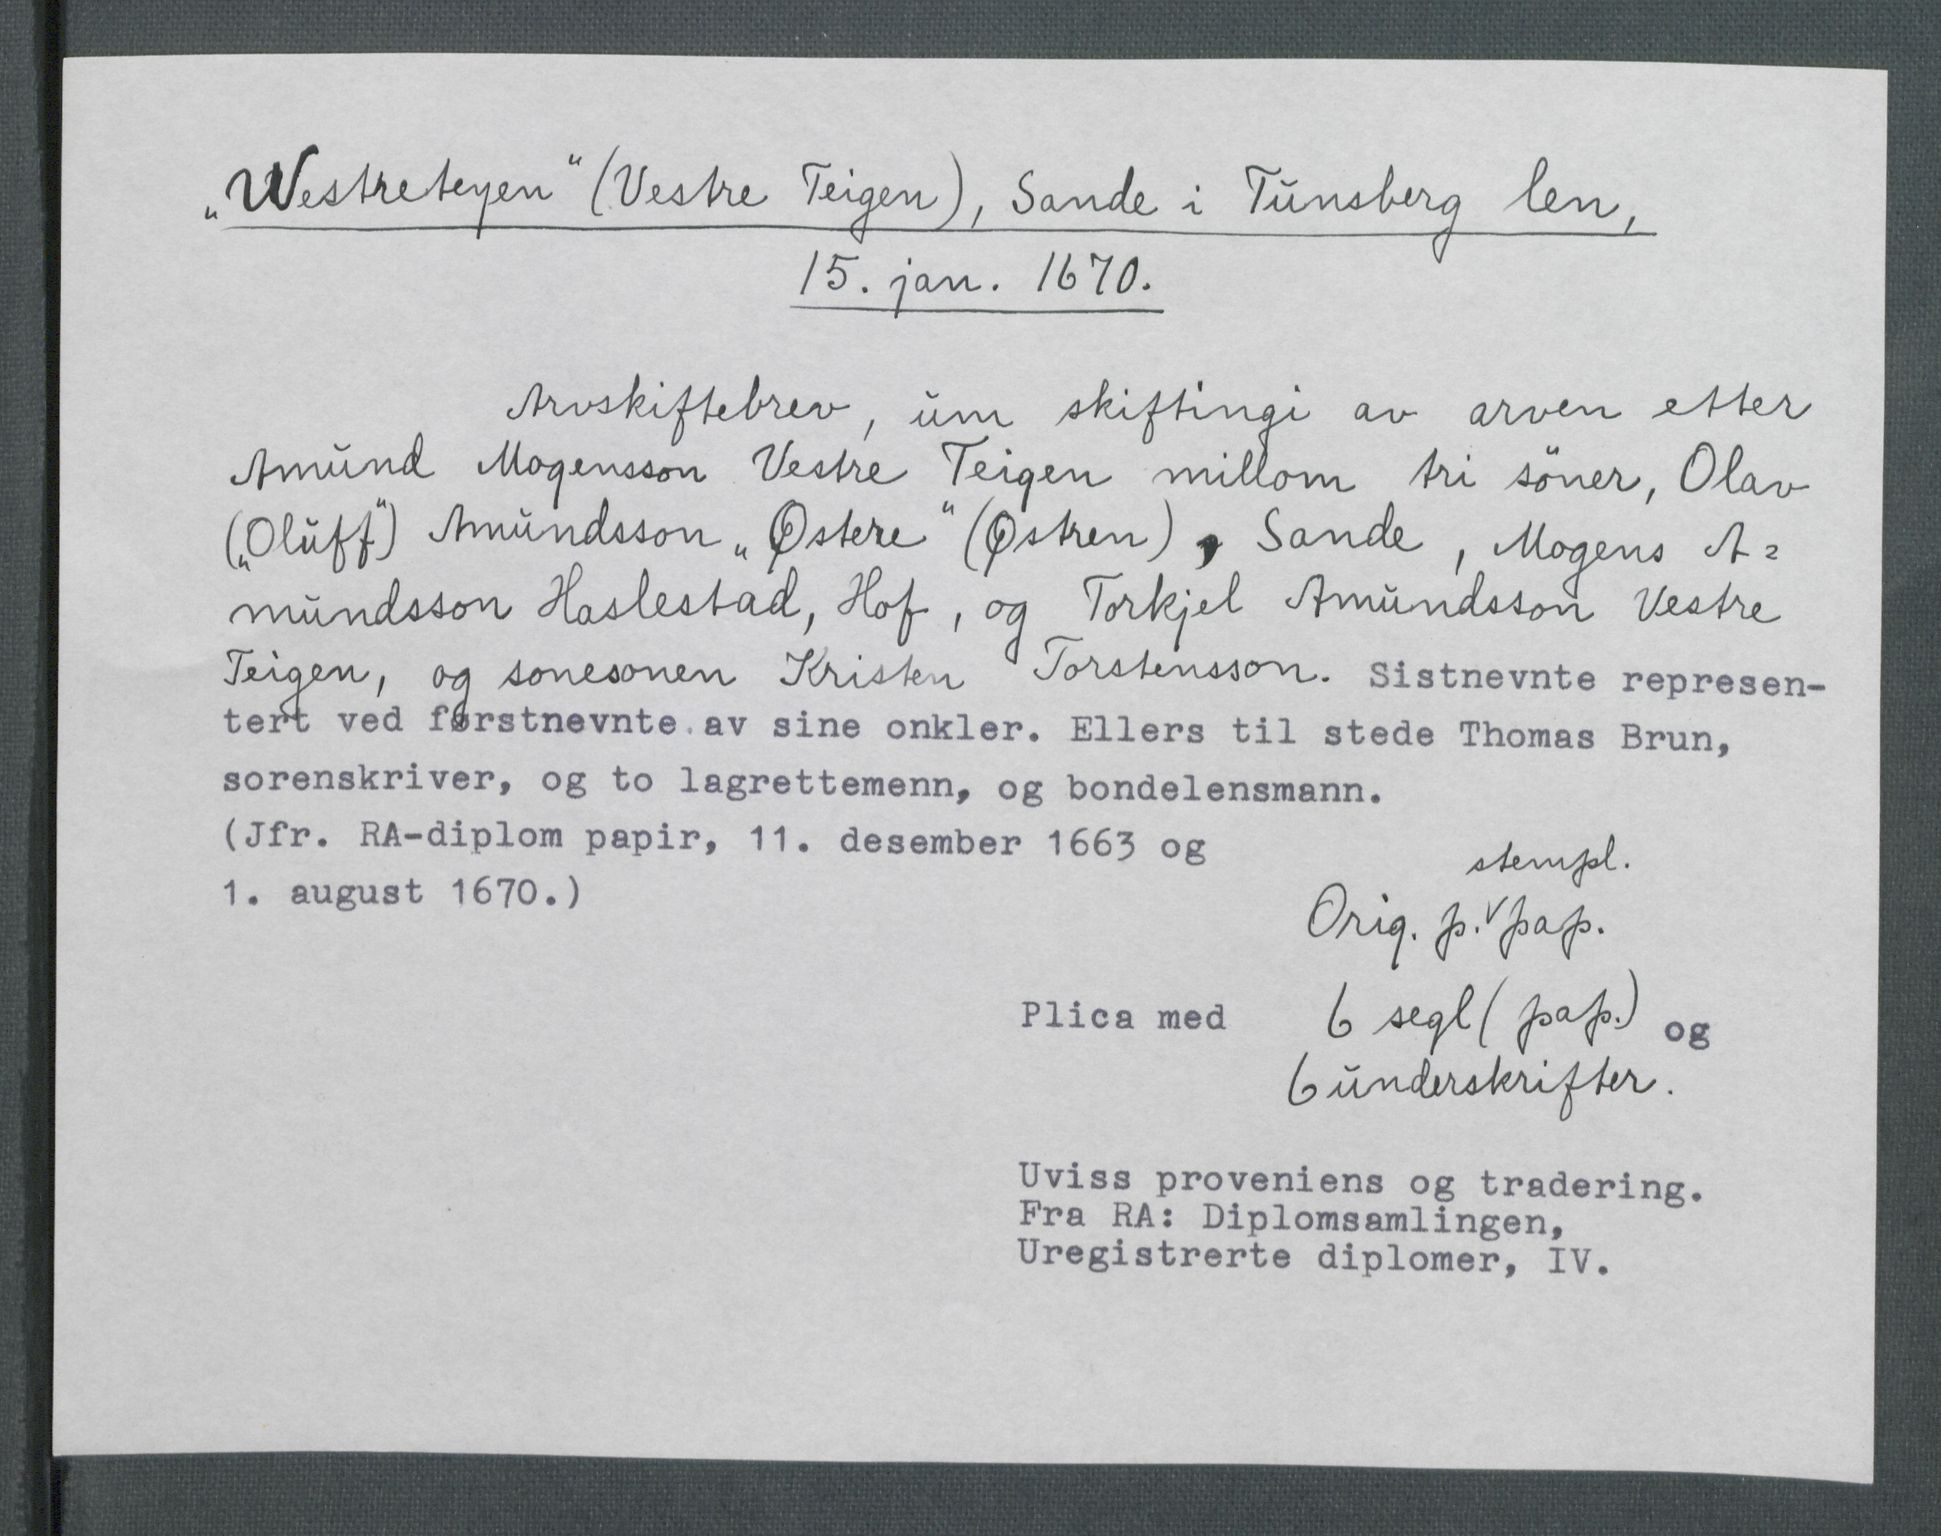 „Westreteyen“ (Vestre Teigen), Sande i Tŭnsberg len,
15. jan. 1670.
Arvskiftebrev, ŭm skiftingi av arven etter
Amŭnd Mogensson Vestre Teigen millom tri söner, Olav
(„Olŭff“) Amŭndsson „Østere“ (Østren), Sande, Mogens A=
mŭndsson Haslestad, Hof, og Torkjel Amŭndsson Vestre
Teigen, og sonesonen Kristen Torstensson. Sistnevnte represen-
tert ved førstnevnte av sine onkler. Ellers til stede Thomas Brun,
sorenskriver, og to lagrettemenn, og bondelensmann.
(Jfr. RA-diplom papir, 11. desember 1663 og
1. august 1670.)
stempl.
Orig. p. ᵛ pap.
Plica med 6 segl (pap.) og
6 ŭnderskrifter.
Uviss proveniens og tradering.
Fra RA: Diplomsamlingen,
Uregistrerte diplomer, IV.